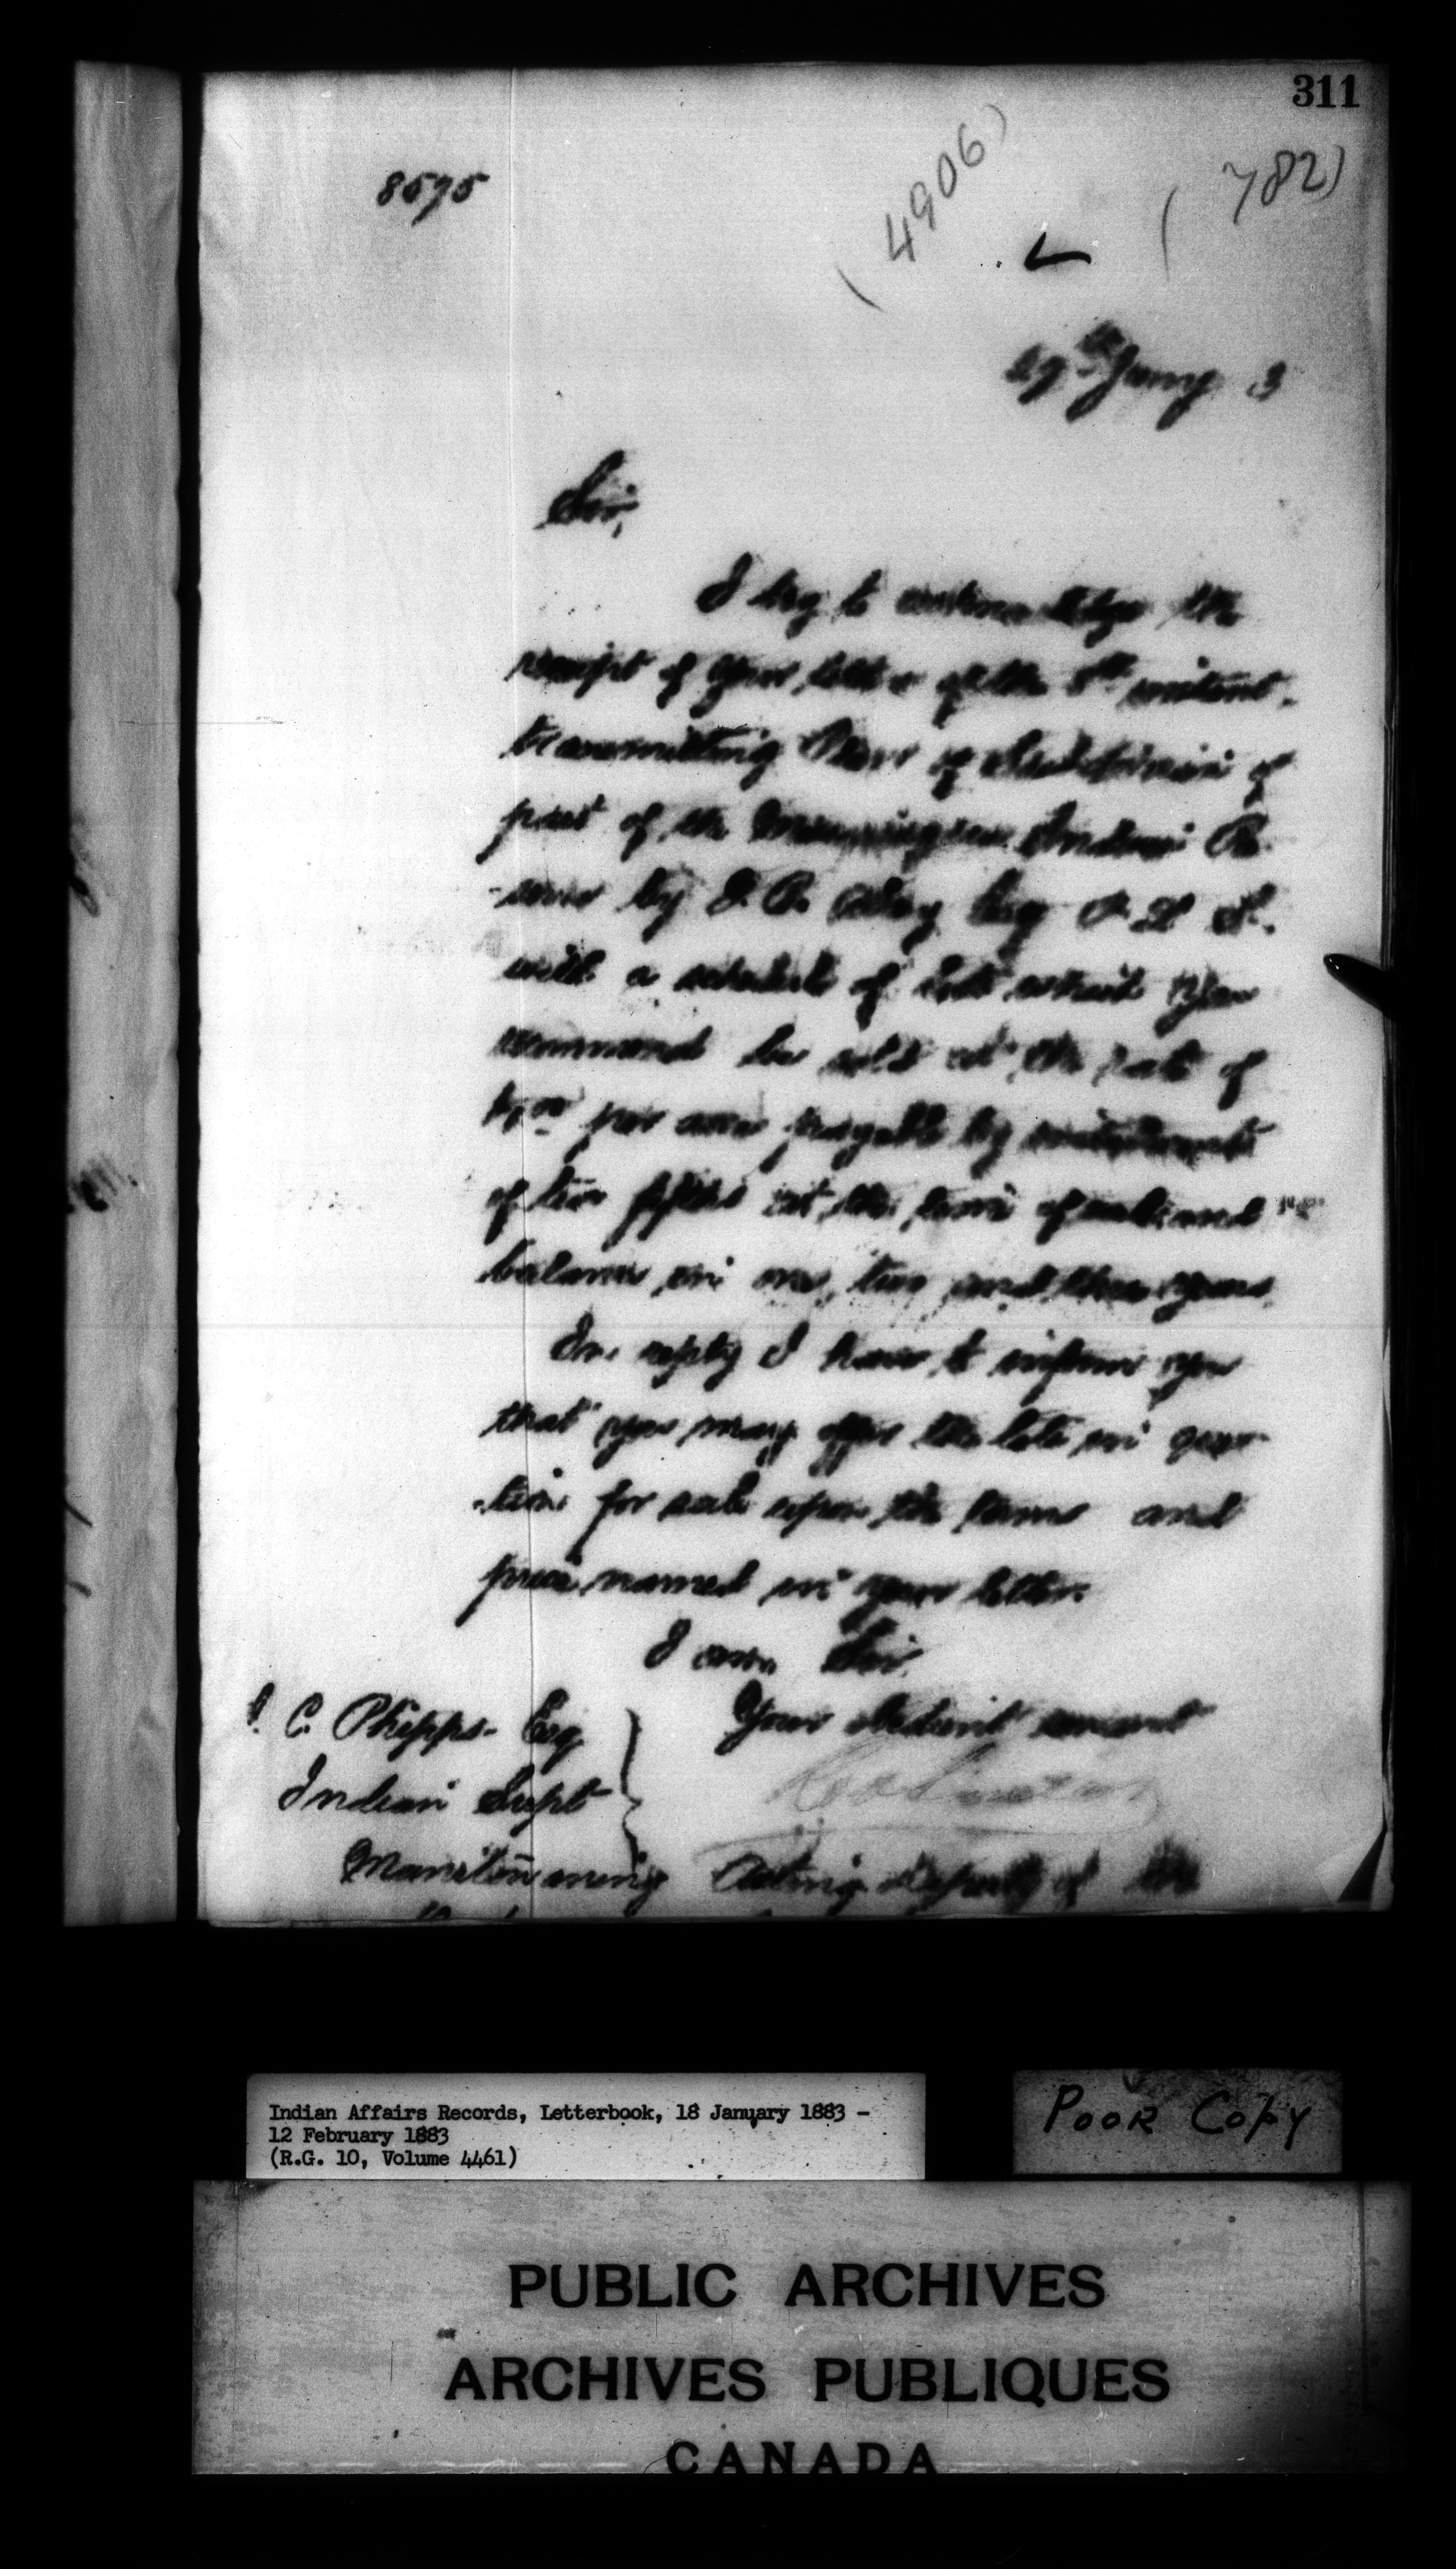 311
8595
(4906)
(782)
29th Jany 3
Sir,
I beg to acknowledge the
receipt of your letter of the 8th instant,
transmitting Plan of Subdivision of
part of the Indian Re
-serve by Esq P. L. S.
with a schedule of lots which you
recommend be sold at the rate of
per acre payable by instalments
of two fifths at the time of sale and
balance in one, two and three years.
In reply I have to inform you
that you may offer the lots in ques
-tion for sale upon the terms and
price named in your letter.
I am Sir
Your obedient servant
J. C. Phipps Esq
Indian Supt
Manitowaning
Acting Deputy of the
Indian Affairs Records, Letterbook, 18 January 1883 -
12 February 1883
(R.G. 10, Volume 4461)
POOR COPY
PUBLIC ARCHIVES
ARCHIVES PUBLIQUES
CANADA